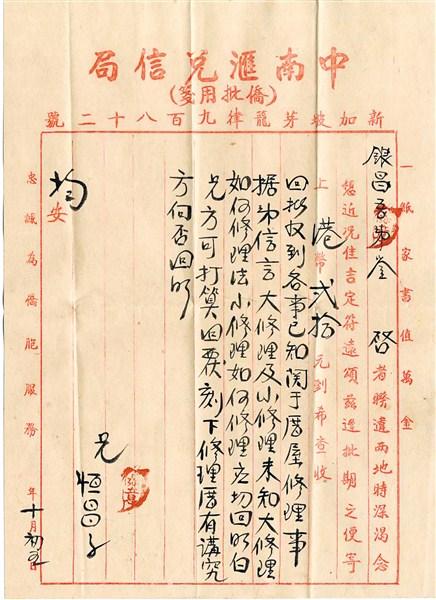 中南滙兌信局
(僑批用箋)
新加坡芽籠律九百八十二號
一紙家書值萬金
銀昌吾弟 啓者暌違兩地時深渴念
您近況佳吉定符遠頌茲逢批期之便寄
上港幣弍拾元到希查收
回批收到各事已知関于厝屋修理事
据弟信言大修理及小修理未知大修理
如何修理法小修理如何修理应切回明白
兄方可打算回覆刻下修理厝有講究
方向否回明
均安
兄 恒昌
忠誠為僑胞服務 年十月初日